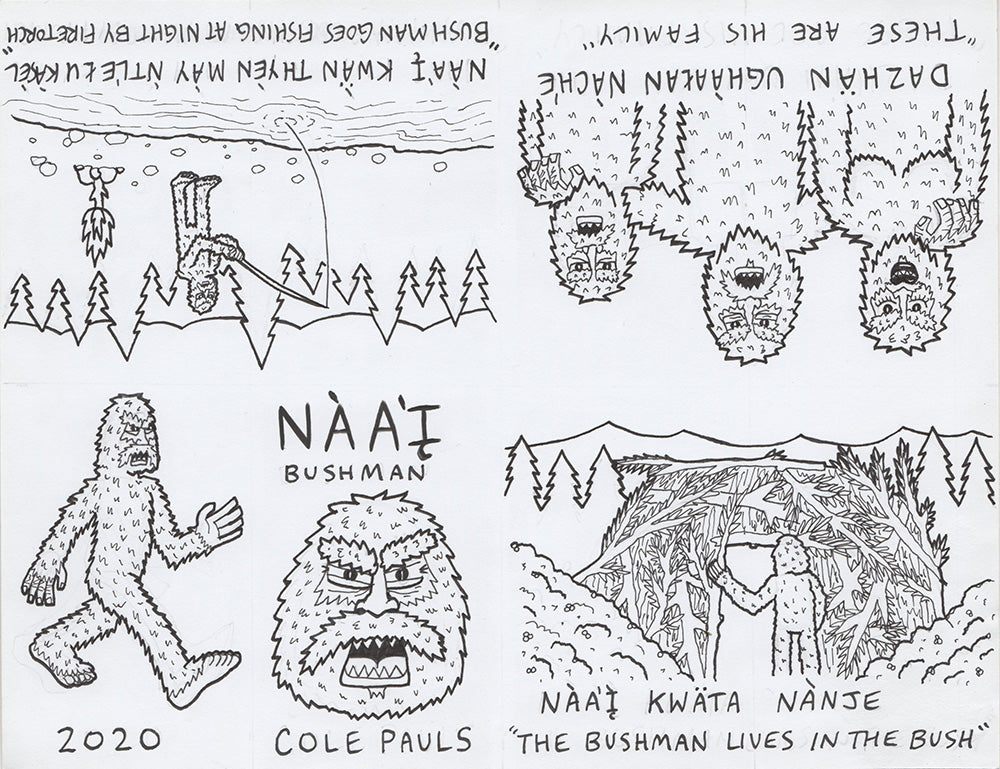 NÀA'Į KWÄN THYÈN MÄY NTLE ŁU KÄ̀EL
"BUSHMAN GOES FISHING AT NIGHT BY FIRETORCH"
DAZHÄN UGHÀAŁAN NÀCHÉ
"THESE ARE HIS FAMILY"
2020
NÀA'Į
BUSHMAN
COLE PAULS
NÀA'Į KWÄTA NÀNJE
"THE BUSHMAN LIVES IN THE BUSH"